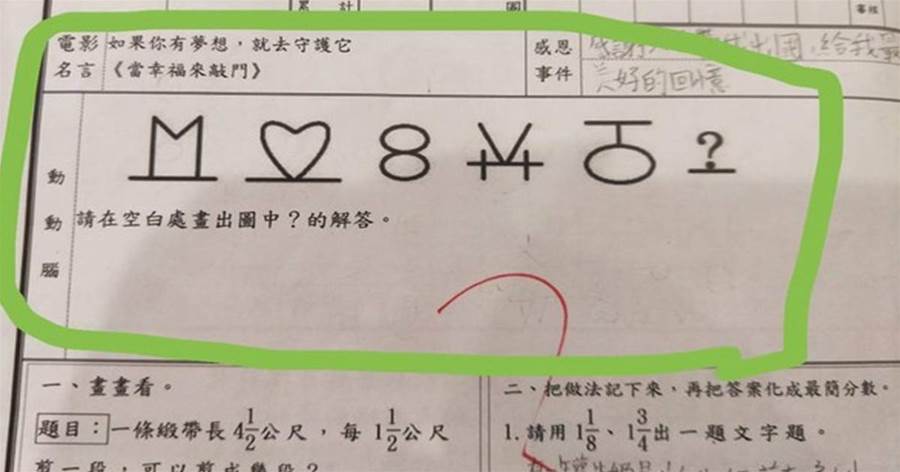 累計
圖
審核
電影 如果你有夢想，就去守護它
名言 《當幸福來敲門》
感恩
事件
出國，給我最
美好的回憶
8 ?
動動腦
請在空白處畫出圖中？的解答。
一、畫畫看。
題目：一條緞帶長4 1/2公尺，每 1 1/2公尺
剪一段，可以剪成幾段？
二、把做法記下來，再把答案化成最簡分數。
1.請用1 1/8、1 3/4出一題文字題。